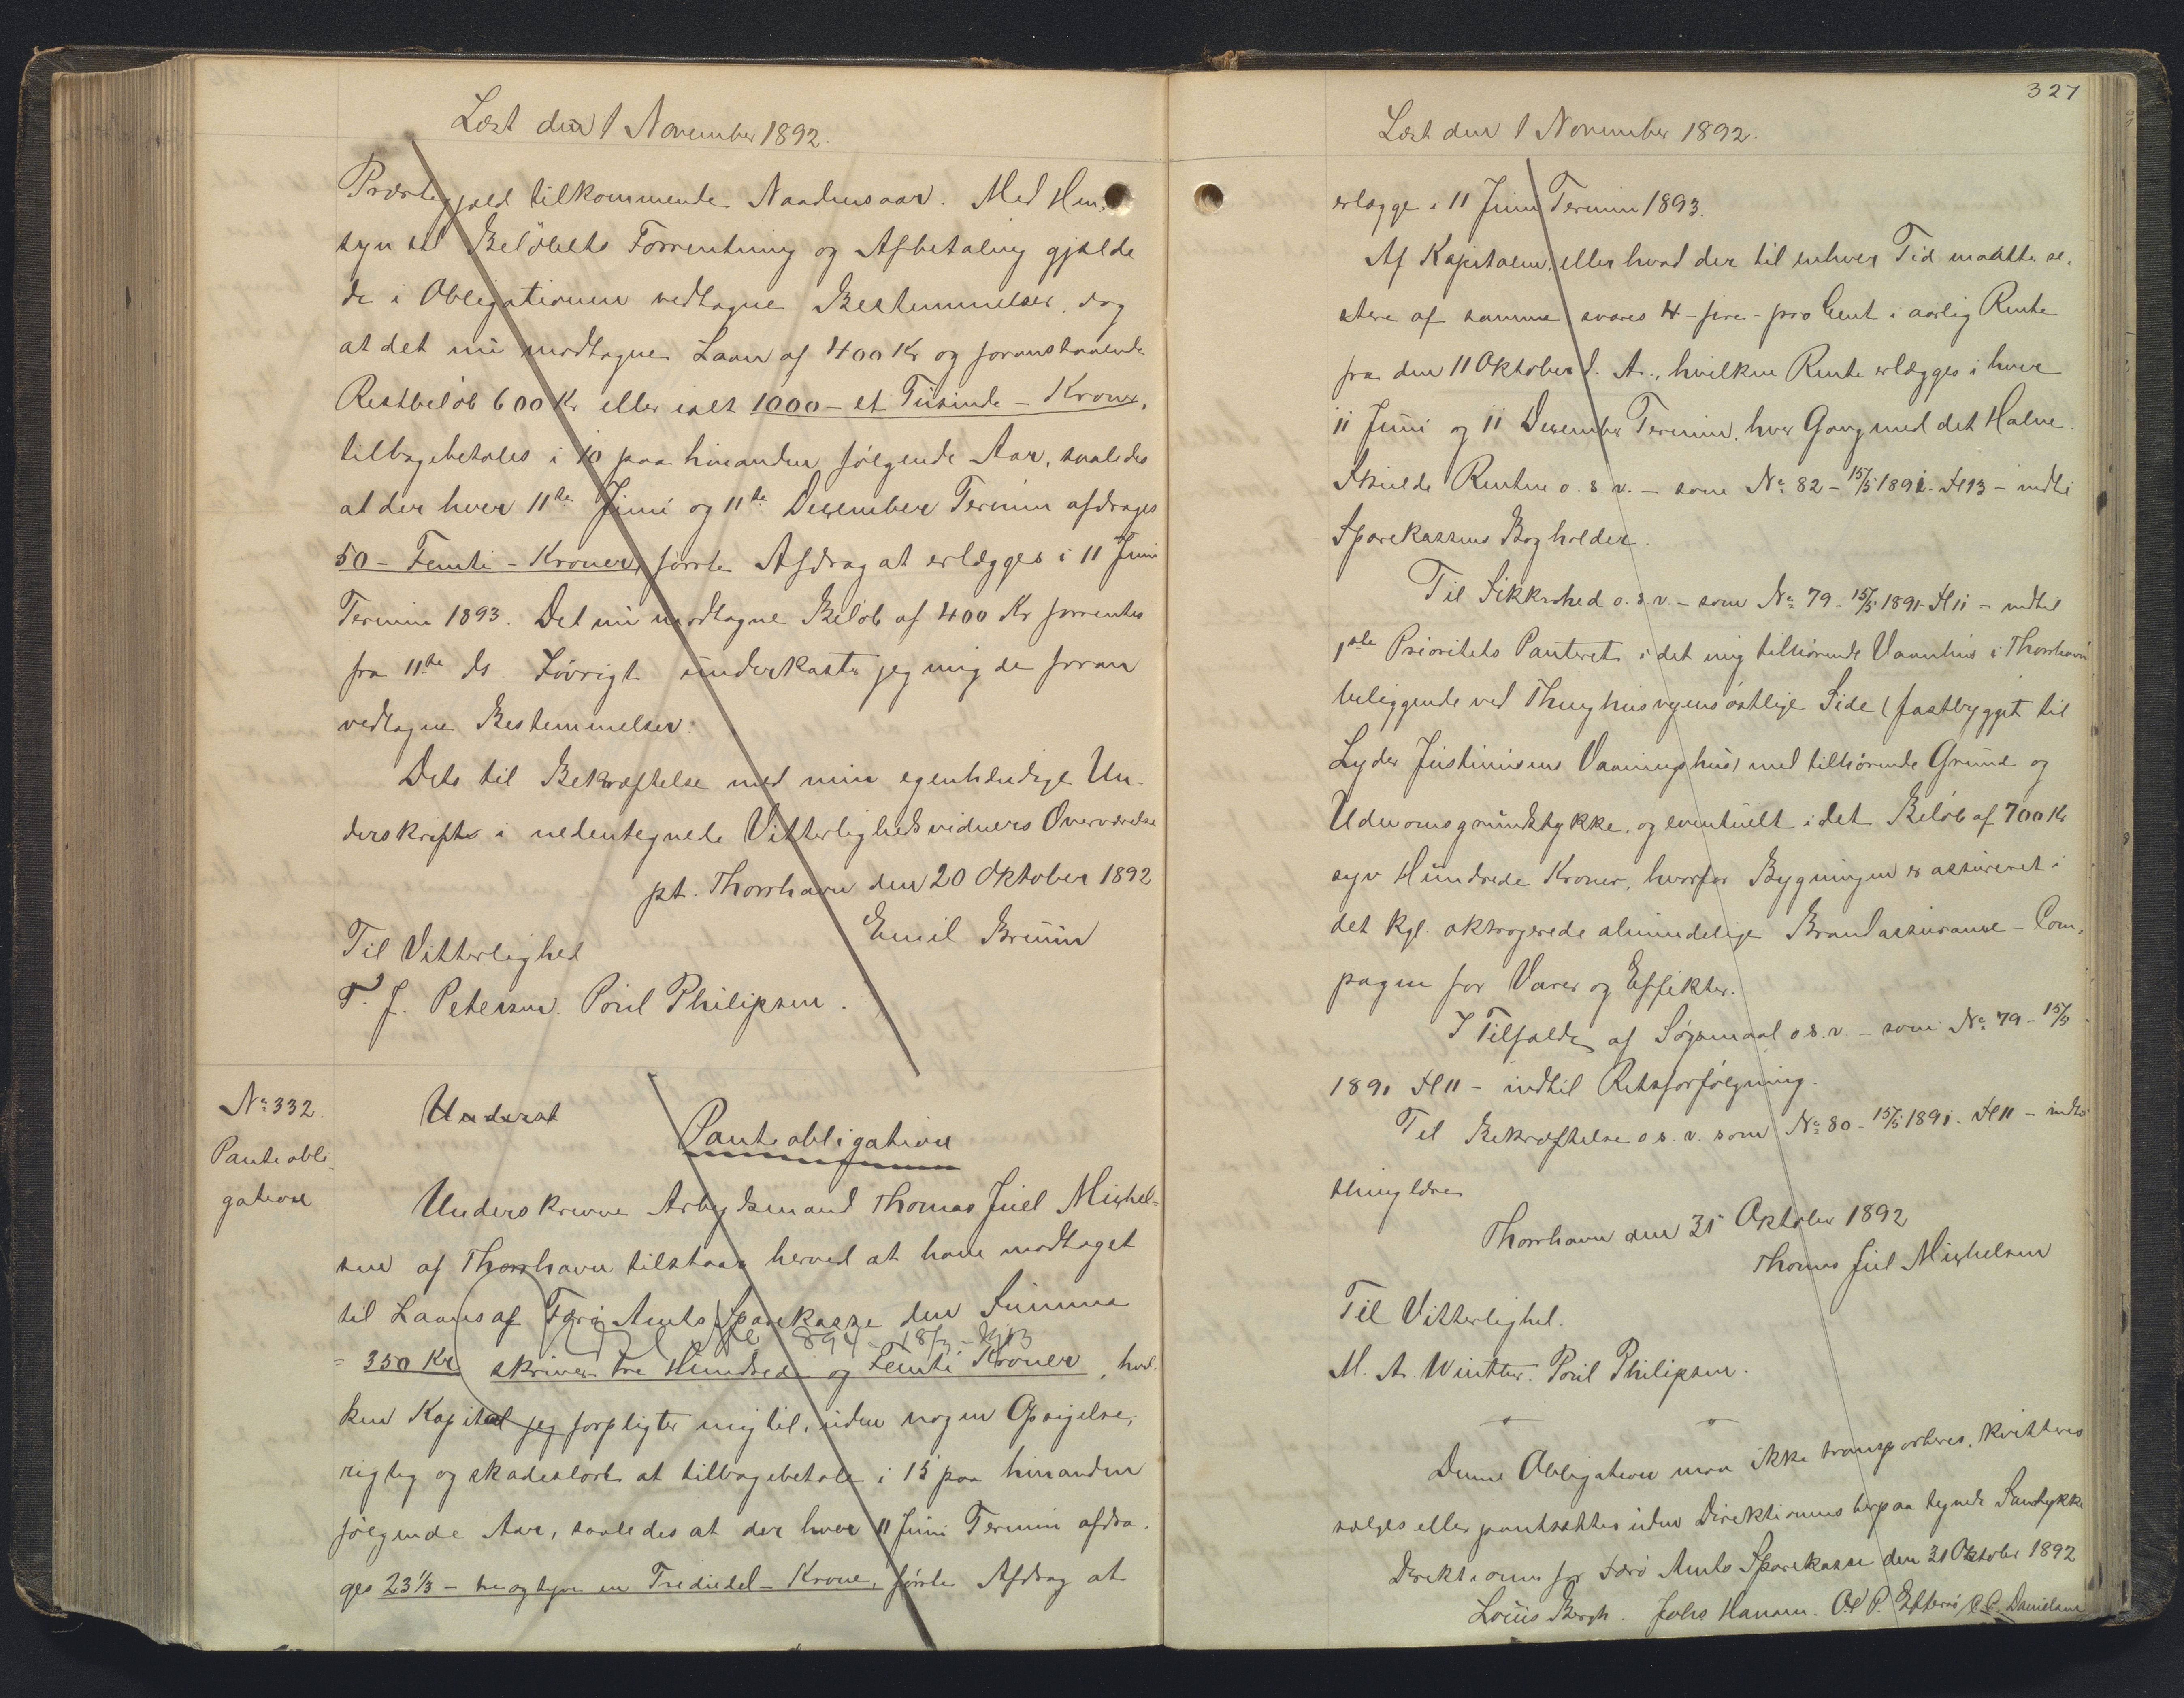 Læst den 1 November 1892.
Præstegjæld tilkommende Naadensaar. Med Hen-
syn til Beløbets Forrentning og Afbetaling gjælde
de i Obligationen vedtagne Bestemmelser, dog
at det nu modtagne Laan af 400 Kr og foranstaaende
Restbeløb 600 Kr eller ialt 1000 - et Tusinde - Kroner,
tilbagebetales i 10 paa hinanden følgende Aar, saaledes
at der hver 11te Juni og 11te December Termin afdrages
50 - Femti - Kroner, første Afdrag at erlægges i 11 Juni
Termin 1893. Det nu modtagne Beløb af 400 Kr forrentes
fra 11te ds. Iøvrigt underkaster jeg mig de foran
vedtagne Bestemmelser.
Dets til Bekræftelse med min egenhændige Un-
derskrift i nedentegnede Vitterlighedsvidners Overværelse
pt. Thorshavn den 20 Oktober 1892
Emil Bruun
Til Vitterlighed
T. J. Petersen. Poul Philipsen.
No 332.
Panteobli-
gation
Underst
Panteobligation
Underskrevne Arbejdsmand Thomas Juel Michel-
sen af Thorshavn tilstaar herved at have modtaget
til Laans af Færø Amts Sparekasse den Summa
= 350 Kr skriver tre Hundrede og Femti Kroner, hvil-
ken Kapital jeg forpligter mig til, uden nogen Opsigelse,
rigtig og skadesløst at tilbagebetale i 15 paa hinanden
følgende Aar, saaledes at der hver 11 Juni Termin afdra-
ges 23 1/3 - tre og tyve en Trediedel - Krone, første Afdrag at
327
Læst den 1 November 1892.
erlægge i 11 Juni Termin 1893.
Af Kapitalen, eller hvad der til enhver Tid maatte re-
stere af samme svares 4 - fire - pro Cent i aarlig Rente
fra den 11 Oktober d. A., hvilken Rente erlægges i hver
11 Juni og 11 December Termin, hver Gang med det Halve.
Skulde Renten o. s. v. - som No 82 - 15/5 1891. H 13 - indtil
Sparekassens Bogholder.
Til Sikkerhed o. s. v. - som No 79 - 15/5 1891 H 11 - indtil
1ste Prioritets Panteret i det mig tilhørende Vaanhus i Thorshavn
beliggende ved Thinghusvejens østlige Side (fastbygget til
Lyder Justinusens Vaaningshus) med tilhørende Grund og
Udenomsgrundstykke, og eventuelt i det Beløb af 700 Kr
syv Hundrede Kroner, hvorfor Bygningen er assureret i
det kgl. oktrojerede almindelige Brandassurance-Com-
pagni for Varer og Effekter.
I Tilfælde af Søgsmaal o s. v. - som No 79 - 15/5
1891 H 11 - indtil Retsforfølgning.
Til Bekræftelse o s. v. som No 80 - 15/5 1891. H 11 - indtil
thinglæses
Thorshavn den 31 Oktober 1892
Thomas Juel Michelsen
Til Vitterlighed.
M. A. Winther. Poul Philipsen.
Denne Obligation maa ikke transporteres, kvitteres
sælges eller pantsættes uden Direktionens herpaa tegnede Samtykke
Direktionen for Færø Amts Sparekasse den 31 Oktober 1892
Louis Bergh. Johs Hansen. O. P. Effersø / C. C. Danielsen